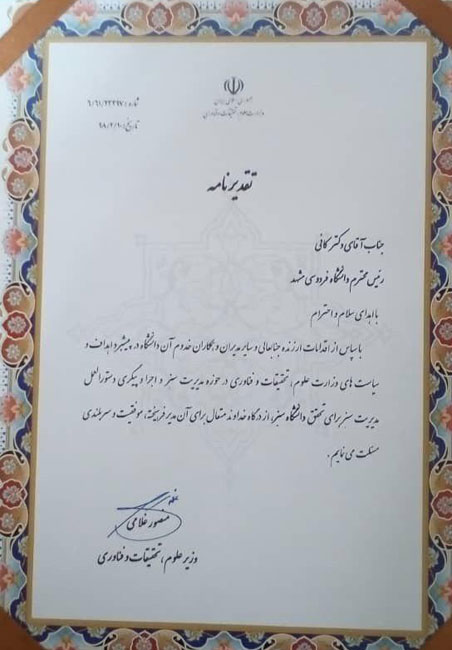 جمهوری اسلامی ایران
وزارت علوم، تحقیقات و فناوری
شماره: ۶/۶۱/۲۲۲۹۷
تاریخ: ۹۸/۲/۱۰
تقدیرنامه
جناب آقای دکتر کافی
رئیس محترم دانشگاه فردوسی مشهد
با اهدای سلام و احترام
با سپاس از اقدامات ارزنده جنابعالی و سایر مدیران و همکاران خدوم آن دانشگاه در پیشبرد اهداف و
سیاست های وزارت علوم، تحقیقات و فناوری در حوزه مدیریت سبز و اجرا و پیگیری دستورالعمل
مدیریت سبز برای تحقق دانشگاه سبز، از درگاه خداوند متعال برای آن مدیر فرهیخته، موفقیت و سربلندی
مسئلت می نمایم.
منصور غلامی
وزیر علوم، تحقیقات و فناوری